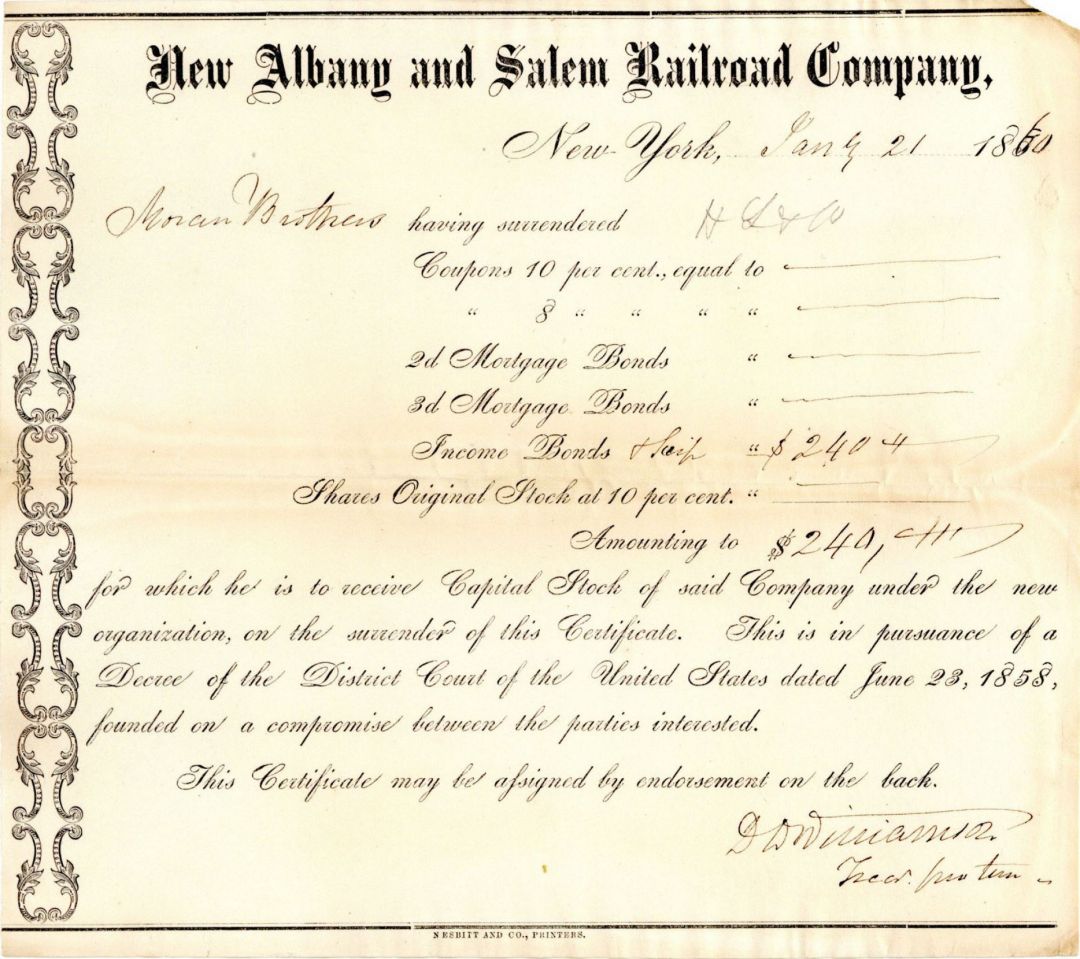 New Albany and Salem Railroad Company,
New York, Jany 21 1860
Moran Brothers having surrendered
Coupons 10 per cent., equal to
" 8 " " " "
2d Mortgage Bonds "
3d Mortgage Bonds "
Income Bonds & Scrip " $240
Shares Original Stock at 10 per cent. "
Amounting to $240,
for which he is to receive Capital Stock of said Company under the new
organization, on the surrender of this Certificate. This is in pursuance of a
Decree of the District Court of the United States dated June 23, 1858,
founded on a compromise between the parties interested.
This Certificate may be assigned by endorsement on the back.
D D Williamson
Treas. pro tem
NESBITT AND CO., PRINTERS.